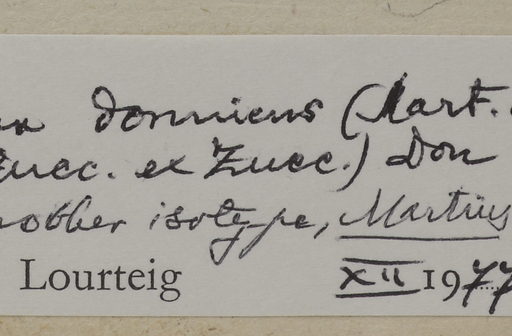 dormiens (Mart.
Zucc. ex Zucc.) Don
another isotype, Martius
Lourteig XII 1977